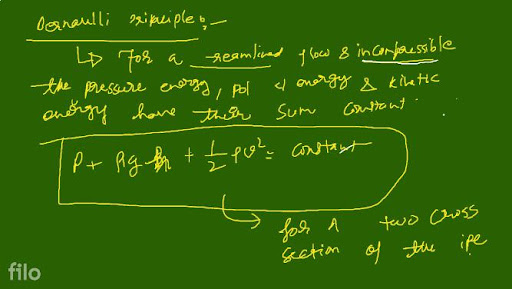 Bernaulli Principle :-
↳ For a reamlined flow & incompressible
the pressure energy, pot el energy & kinetic
energy have their sum constant .
P + ρg h + 1/2 ρv² = constant
↳ for a two cross
section of the ipe
filo